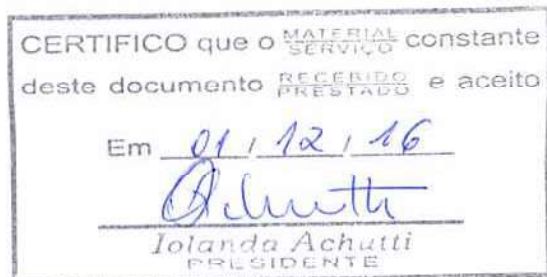 CERTIFICO que o MATERIAL SERVIÇO constante
deste documento RECEBIDO PRESTADO e aceito
Em 01 / 12 / 16
Achutti
Iolanda Achutti
PRESIDENTE